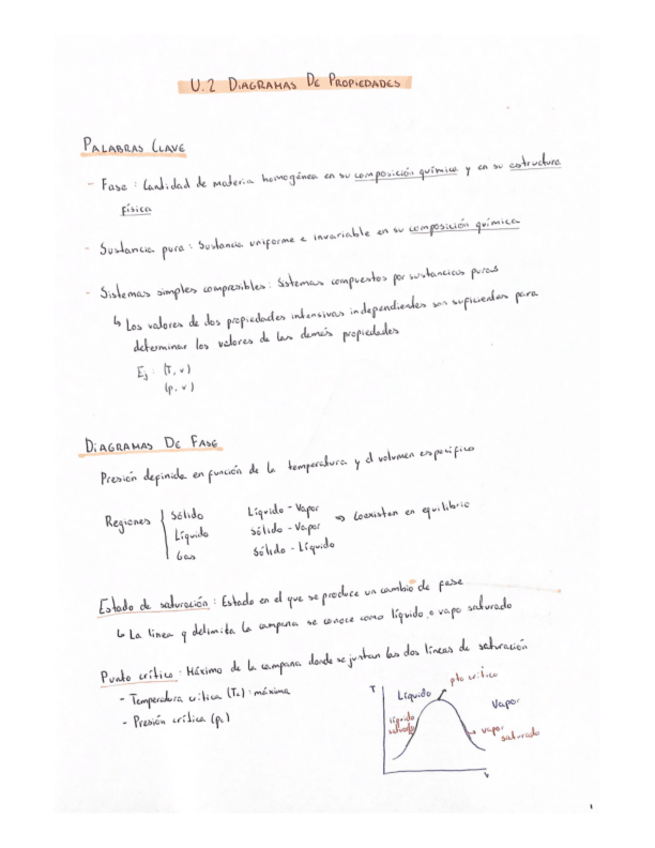 U.2 DIAGRAMAS DE PROPIEDADES
PALABRAS CLAVE
- Fase : Cantidad de materia homogénea en su composición química y en su estructura
física
- Sustancia pura : Sustancia uniforme e invariable en su composición química
- Sistemas simples compresibles : Sistemas compuestos por sustancias puras
↳ Los valores de dos propiedades intensivas independientes son suficientes para
determinar los valores de las demás propiedades
Ej : (T, v)
(p, v)
DIAGRAMAS DE FASE
Presión definida en función de la temperatura y el volumen específico
Regiones
Sólido
Líquido
Gas
Líquido - Vapor
Sólido - Vapor
Sólido - Líquido
⇒ Coexisten en equilibrio
Estado de saturación : Estado en el que se produce un cambio de fase
↳ La línea q delimita la campana se conoce como líquido o vapo saturado
Punto crítico : Máximo de la campana donde se juntan las dos líneas de saturación
- Temperatura crítica (Tc) : máxima
- Presión crítica (pc)
T
Líquido
pto crítico
Vapor
líquido
vapor
saturado
v
1